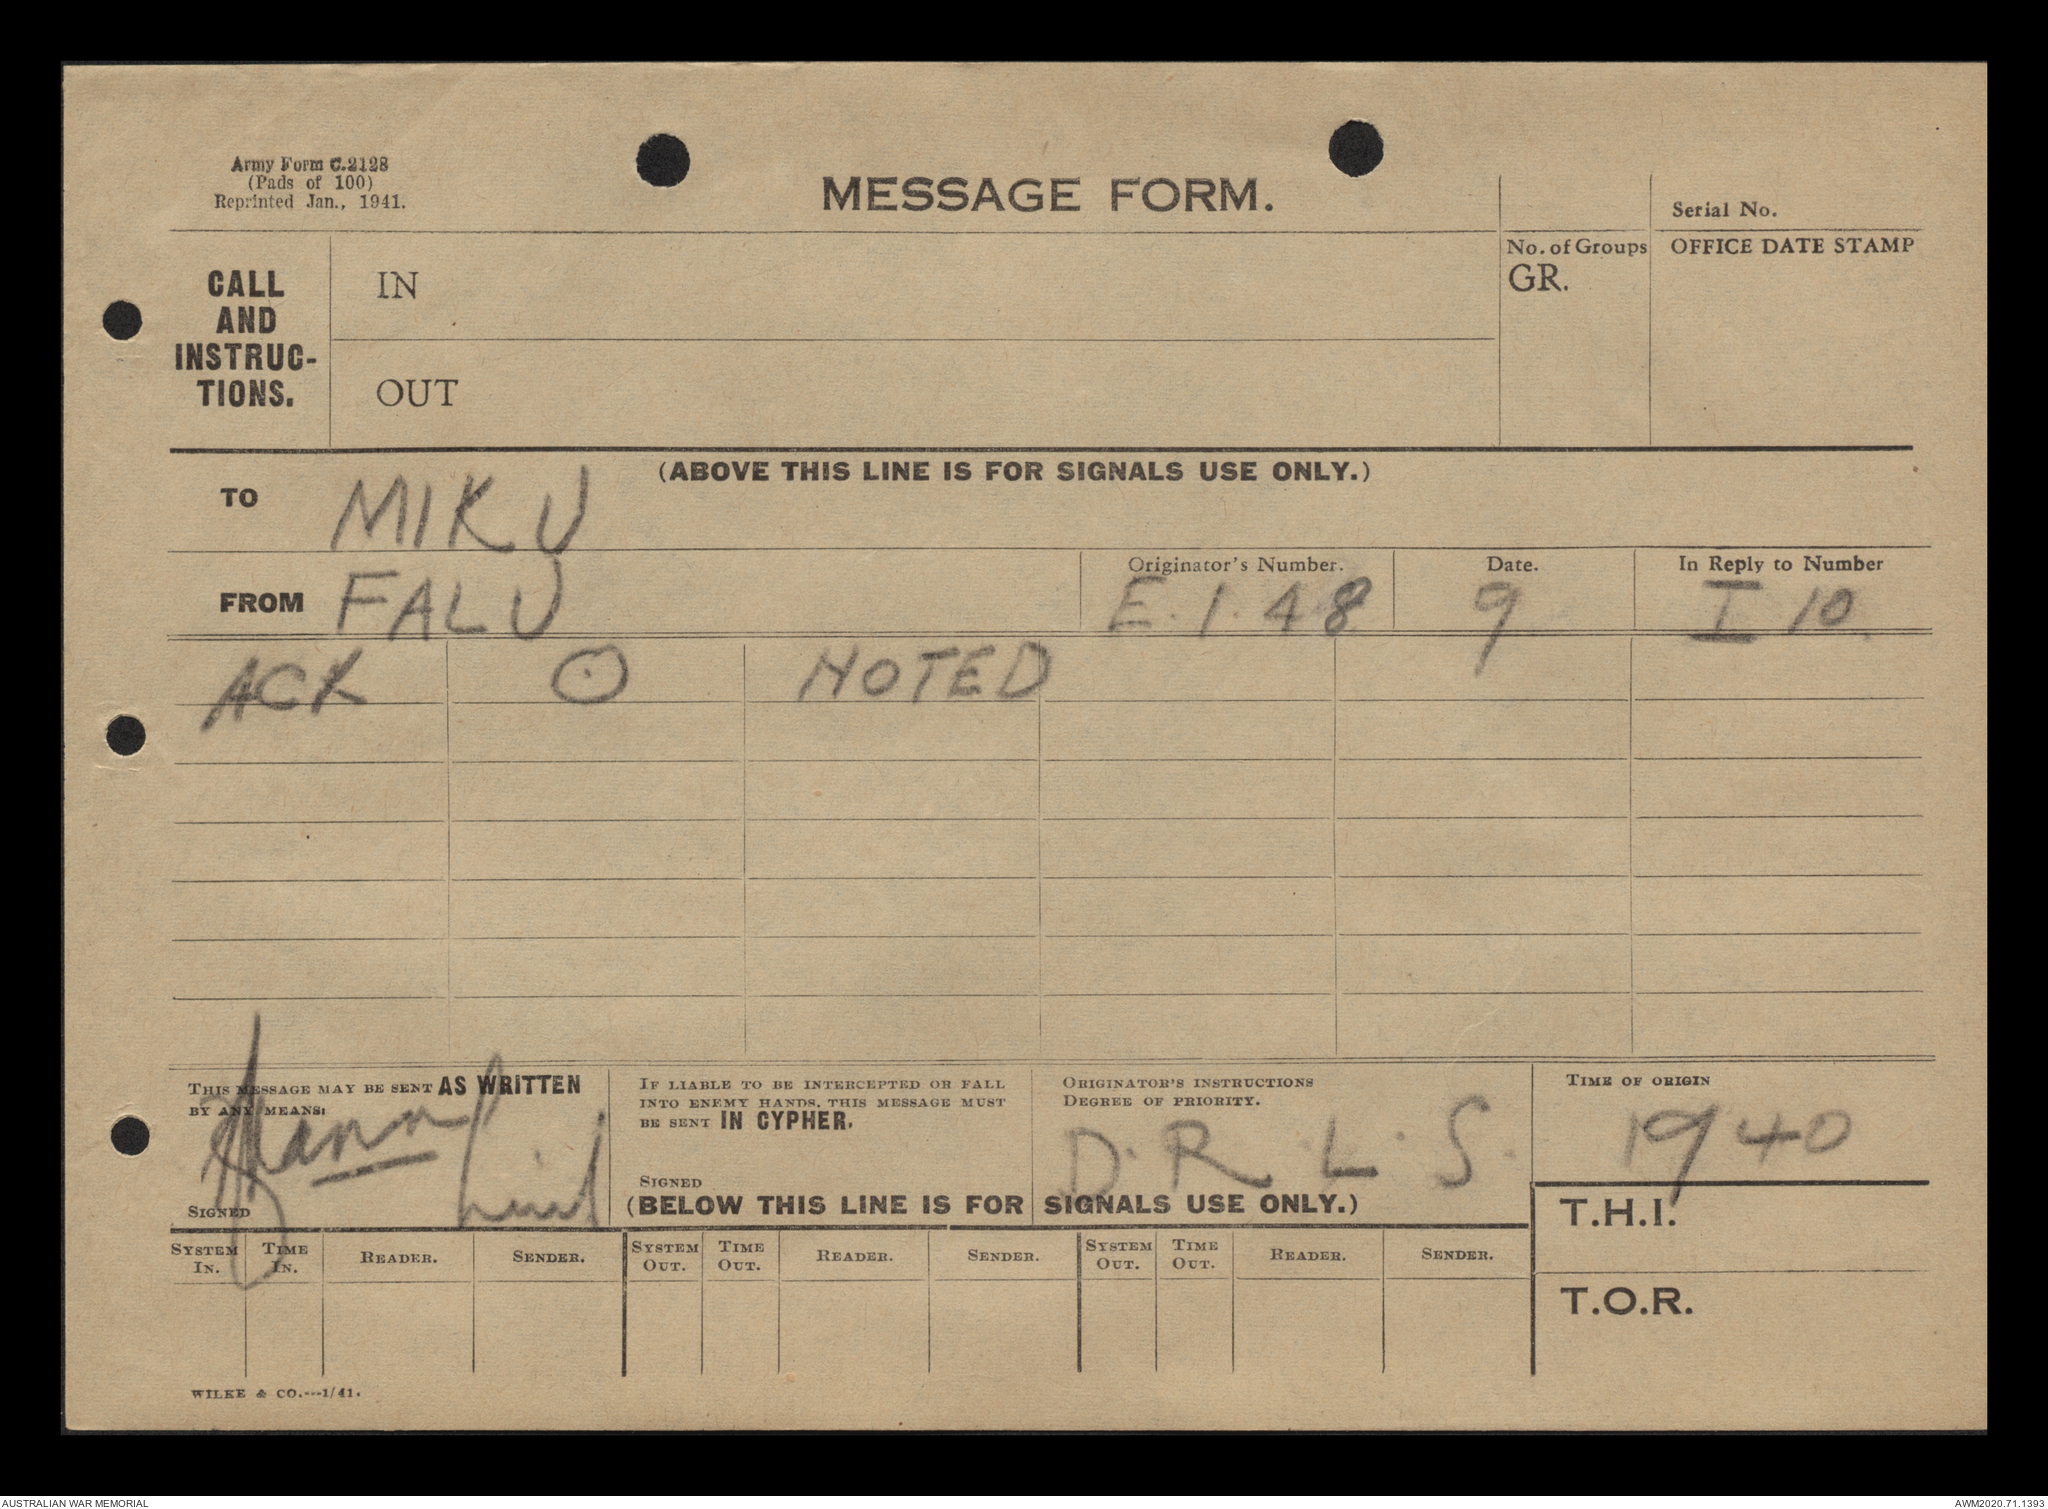 Army Form C.2128
(Pads of 100)
Reprinted Jan., 1941.
MESSAGE FORM.
Serial No.
CALL
AND
INSTRUC-
TIONS.
IN
OUT
No. of Groups
GR.
OFFICE DATE STAMP
(ABOVE THIS LINE IS FOR SIGNALS USE ONLY.)
TO MIKU
FROM FALU
Originator's Number.
E.1.48
Date.
9
In Reply to Number
I 10.
ACK O NOTED
THIS MESSAGE MAY BE SENT AS WRITTEN
BY ANY MEANS:
SIGNED
IF LIABLE TO BE INTERCEPTED OR FALL
INTO ENEMY HANDS, THIS MESSAGE MUST
BE SENT IN CYPHER.
SIGNED
ORIGINATOR'S INSTRUCTIONS
DEGREE OF PRIORITY.
D.R.L.S.
TIME OF ORIGIN
1940
(BELOW THIS LINE IS FOR SIGNALS USE ONLY.)
T.H.I.
T.O.R.
SYSTEM IN. TIME IN. READER. SENDER. SYSTEM OUT. TIME OUT. READER. SENDER. SYSTEM OUT. TIME OUT. READER. SENDER.
WILKE & CO.---1/41.
AUSTRALIAN WAR MEMORIAL
AWM2020.71.1393